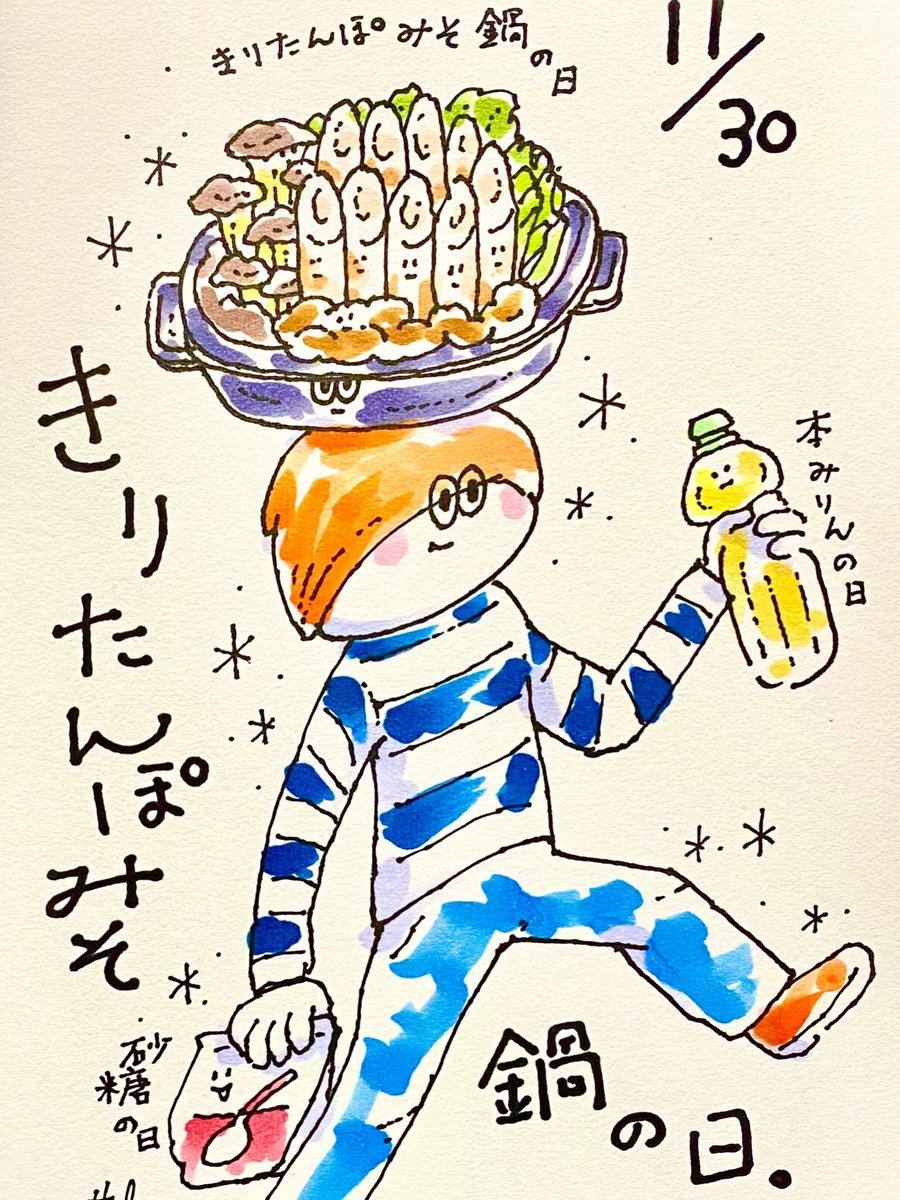 11/30
きりたんぽみそ鍋の日
きりたんぽみそ
鍋の日.
本みりんの日
砂糖の日